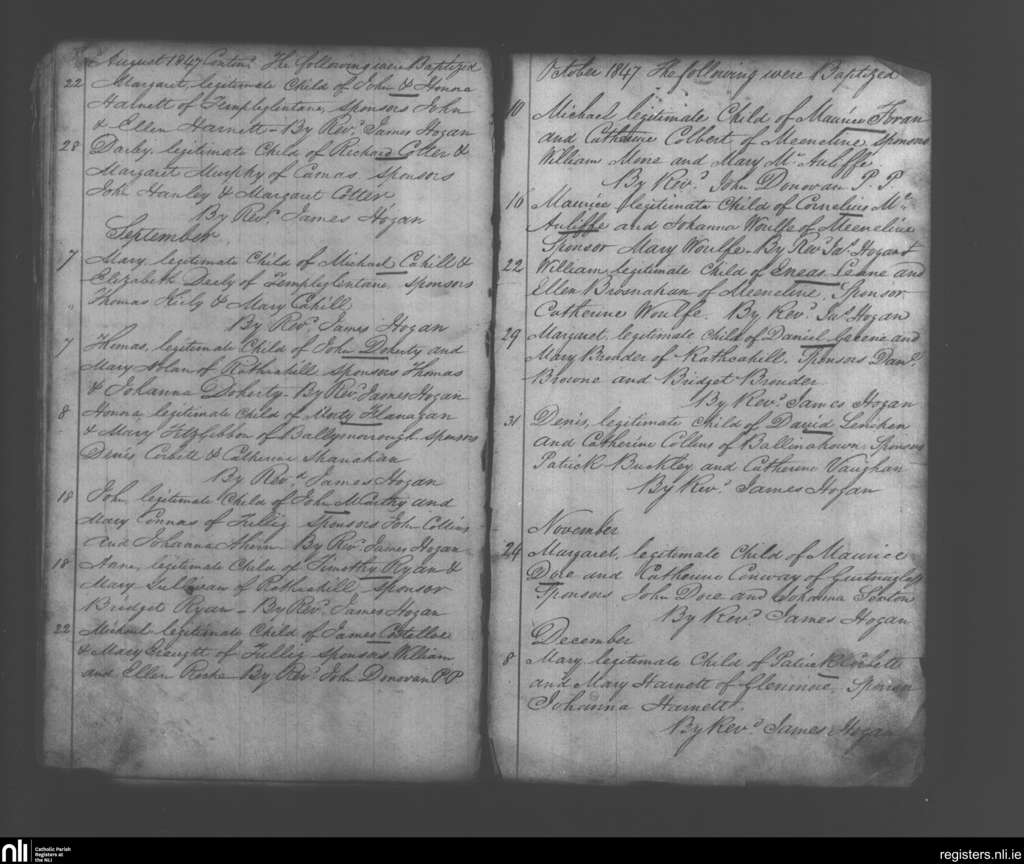 August 1847 Contind. The following were Baptized
22 Margaret, legitimate Child of John & Honora
Harnett of Templeglentane, sponsors John
& Ellen Harnett - By Revd. James Hogan
28 Darby, legitimate Child of Richard Cotter &
Margaret Murphy of Camas, sponsors
John Hanley & Margaret Cotter
By Revd. James Hogan
September
7 Mary, legitimate Child of Michael Cahill &
Elizabeth Deely of Templeglentane, sponsors
" Thomas Kiely & Mary Cahill
By Revd. James Hogan
7 Thomas, legitimate Child of John Doherty and
Mary Nolan of Rathcahill sponsors Thomas
& Johanna Doherty - By Revd. James Hogan
8 Honora, legitimate Child of Morty Flanagan
& Mary FitzGibbon of Ballymorrough sponsors
Denis Corbett & Catherine Shanahan
By Revd. James Hogan
18 John, legitimate Child of John Murthy and
Mary Connas of Tullig sponsors John Collins
and Johanna Ahern - By Revd. James Hogan
18 Anne, legitimate Child of Timothy Ryan &
Mary Sullivan of Rathcahill - Sponsor
Bridget Ryan - By Revd. James Hogan
22 Michael legitimate Child of James Costelloe
& Mary Geught of Tullig sponsors William
and Ellen Roche - By Revd. John Donovan P.P
October 1847 The following were Baptized
10 Michael legitimate Child of Maurice Foran
and Catharine Colbert of Meenoline sponsors
William Mone and Mary Mc. Auliffe.
By Revd. John Donovan P. P.
16 Maurice legitimate Child of Cornelius Mc.
Auliffe and Johanna Woulfe of Meenoline
Sponsor Mary Woulfe - By Revd. Jas. Hogan
22 William, legitimate Child of Eneas Leane and
Ellen Brosnahan of Meenoline. Sponsor
Catherine Woulfe. By Revd. Jas. Hogan
29 Margaret, legitimate Child of Daniel Greene and
Mary Brouder of Rathcahill. Sponsors Danl.
Browne and Bridget Brouder
By Revd. James Hogan
31 Denis, legitimate Child of David Lenihan
and Catherine Collins of Ballinakown. Sponsors
Patrick Buckley and Catherine Vaughan
By Revd. James Hogan
November
24 Margaret, legitimate Child of Maurice
Dore and Katherine Conway of
Sponsors John Dore and Johanna Sexton
By Revd. James Hogan
December
8 Mary legitimate Child of Patrick Corbett
and Mary Harnett of Glenmore, Sponsor
Johanna Harnett.
By Revd. James Hogan
nli Catholic Parish
Registers at
the NLI
registers.nli.ie